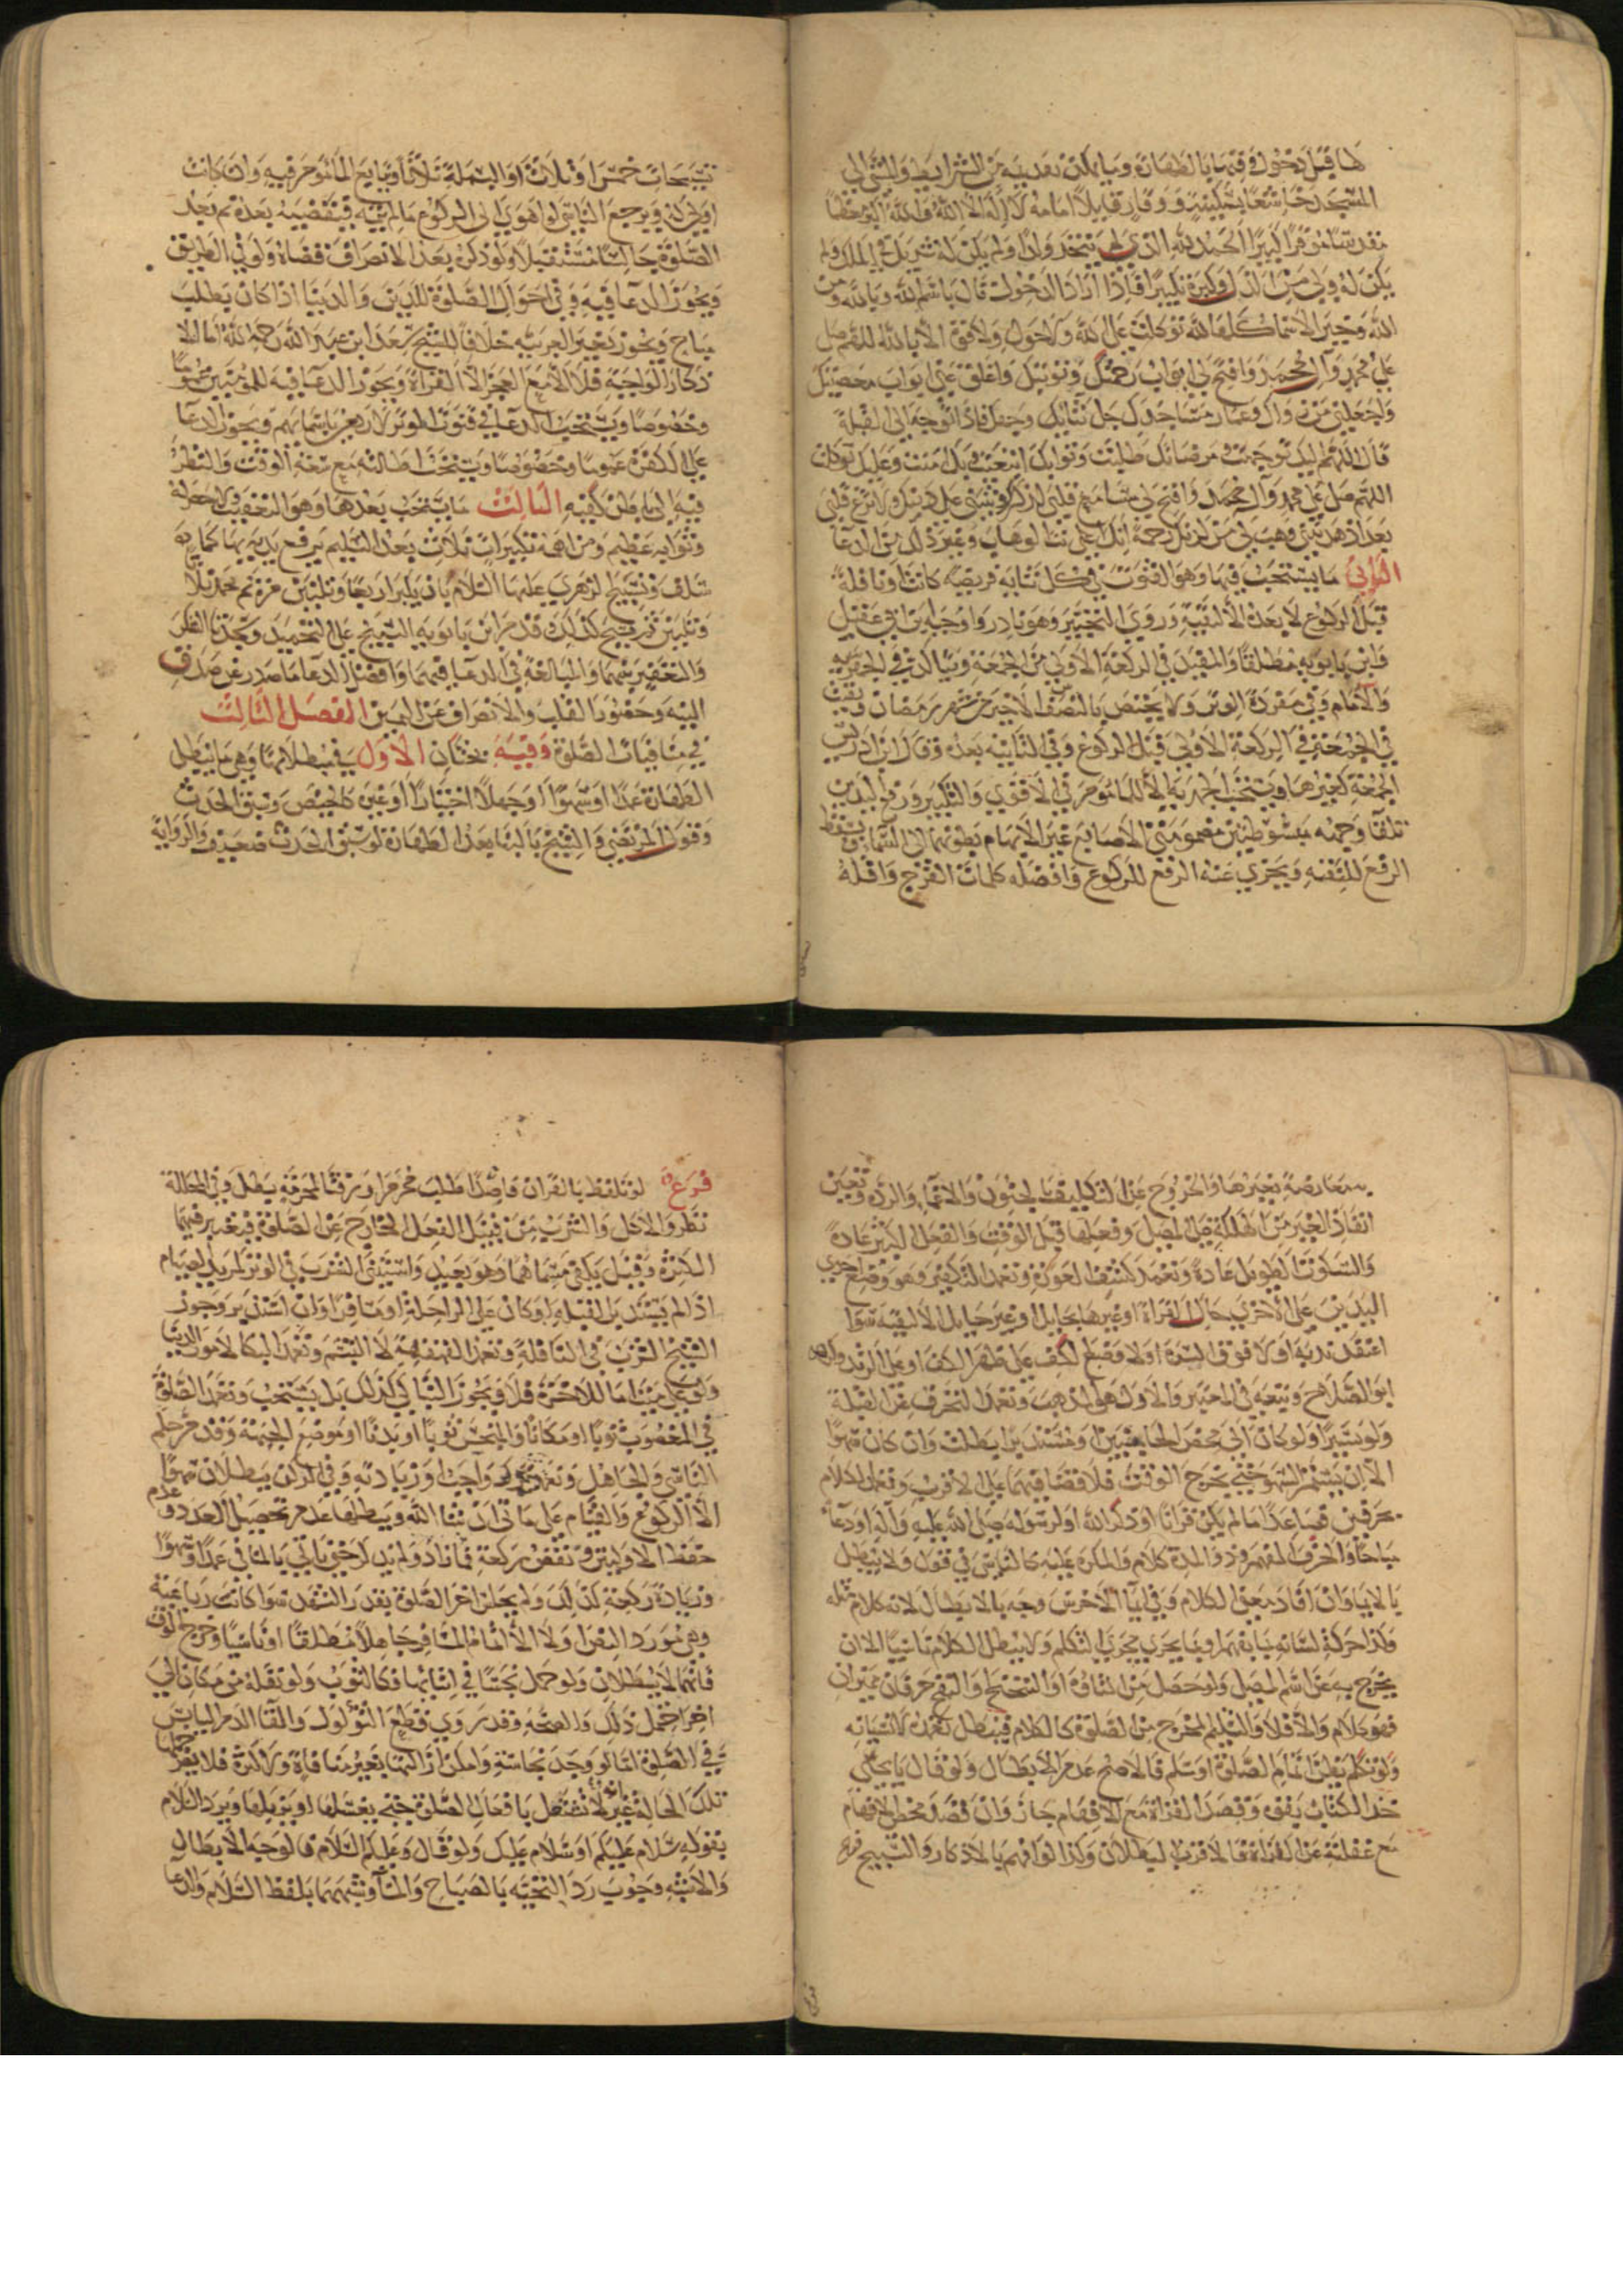 لها قبل دخوله فيها بالطهارة وما يمكن تقديمه من الشرايط والمشي الى
المسجد خاشعًا بسكينة ووقار قايلًا امامه لا إله الا الله والله اكبر
الحمد لله الذي لم يتخذ ولدًا ولم يكن له شريك في الملك ولم
يكن له ولي من الذل وكبره تكبيرًا فاذا اراد الدخول قال باسم الله وبالله ومن
الله وخير الاسما كلها لله توكلت على الله ولا حول ولا قوة الا بالله اللهم صل
على محمد وآل محمد وافتح لي ابواب رحمتك وتوبتك واغلق عني ابواب معصيتك
واجعلني من زوارك وعمار مساجدك جل ثناؤك وجهك فاذا توجه الى القبلة
قال اللهم اليك توجهت مرضاتك طلبت وثوابك ابتغيت بك امنت وعليك توكلت
اللهم صل على محمد وآل محمد وافتح لي مسامع قلبي لذكرك وثبتني على دينك ولا تزغ قلبي
بعد اذ هديتني وهب لي من لدنك رحمة انك انت الوهاب وغير ذلك من الدعا
الثاني ما يستحب فيها وهو القنوت في كل ثنايه فريضه كانت او نافلة
قبل الركوع لا بعده الا لتقية وروي التخيير وهو نادر واوجبه ابن ابي عقيل
وابن بابويه مطلقًا والمفيد في الركعة الاولى من الجمعة
والامام وفي مفردة الوتر ولا يختص بالنصف الاخير من شهر رمضان ويقنت
في الجمعة في الركعة الاولى قبل الركوع وفي الثانية بعده وقال ابن ادريس
الجمعة كغيرها ويستحب الجهر به الا للماموم في الاقوى والتكبير ورفع اليدين
تلقا وجهه مبسوطتين مضمومتي الاصابع غير الابهام بطونهما الى السما ويسقط
الرفع للتقيه ويجزي عنه الرفع للركوع وافضله كلمات الفرج واقله
تسبيحات خمس او ثلاث او البسملة ثلاثًا ويتابع الماموم فيه وان كانت
اولى له ويرجع الناسي لو اهوى الى الركوع ما لم ينته فيقضيه بعده ثم بعد
الصلوة جالسًا مستقبلًا ولو ذكره بعد الانصراف قضاه ولو في الطريق
ويجوز الدعا فيه وفي احوال الصلوة للدين والدنيا اذا كان يطلب
مباح ويجوز بغير العربيه خلافًا للشيخ سعد ابن عبد الله رحمه الله اما الا
ذكار الواجبة فلا الا مع العجز الا القراة ويجوز الدعا فيه للمؤمنين عمومًا
وخصوصًا ويستحب الدعا في قنوت الوتر لاربعين باسمائهم ويجوز الدعا
على الكفرة عمومًا وخصوصًا ويستحب اطالته مع سعة الوقت والنظر
فيه الى باطن كفيه الثالث ما يستحب بعدها وهو التعقيب
وثوابه عظيم ومن اهمه تكبيرات ثلاث بعد التسليم يرفع يديه بها كما
سلف وتسبيح الزهرى عليها السلام بان يكبر اربعًا وثلثين مرة ثم يحمد ثلاثًا
وثلثين ثم يسبح كذلك وقدم ابن بابويه التسبيح على التحميد وسجدتا الشكر
والتعفير بينهما والمبالغة في الدعا فيهما وافضل الدعا ما صدر عن صادق
النية وحضور القلب والانصراف عن اليمين الفصل الثالث
في منافيات الصلوة وفيه بحثان الاول في مبطلاتها وهي ما يبطل
الطهارة عمدًا او سهوًا او جهلًا اختيارًا او غيره كالحيض وسبق الحدث
وقول المرتضى والشيخ بالبنا بعد الطهارة لو سبق الحدث ضعيف والرواية
معارضة بغيرها والخروج عن التكليف بالجنون والاغما والردة وتعين
انقاذ الغير من الهلكة قبل المصلي وفعلها قبل الوقت والفعل الكثير عادةً
والسكوت الطويل عادةً وتعمد كشف العورة وتعمد التكفير وهو وضع احدى
اليدين على الاخرى حال القراة او غيرها بحايل او غير حايل الا لتقيه سوا
اعتقد ندبه او لا فوق السرة او لا وضع الكف على ظهر الكف او على الزند
ابو الصلاح وتبعه في المعتبر والاول هو المذهب وتعمد التحرف عن القبلة
ولو يسيرًا ولو كان الى محض الجانبين او مستدبرًا بطلت وان كان سهوًا
الا ان يستمر السهو حتى يخرج الوقت فلا قضا فيهما على الاقرب وتعمد الكلام
بحرفين فصاعدًا ما لم يكن قرانًا او ذكر الله او لرسوله صلى الله عليه وآله او دعآءً
مباحًا والحرف المفهم وذو المدة كلام والمكره عليه كالناسي في قول ولا يبطل
بالايما وان افاد معنى الكلام وفي ايمآ الاخرس وجه بالابطال لانه كلام مثله
وكذا حركة لسانه بما يفهم او بما يجري مجرى التكلم ولا يبطل الكلام ناسيًا الا ان
يخرج به عن اسم المصلي ولو حصل من التاوه او التنحنح والنفخ حرفان مميزان
فهو كلام والا فلا والتسليم المخرج من الصلوة كالكلام فيبطل تعمده لا نسيانه
ولو تكلم بظن تمام الصلوة او سلم فالاصح عدم الابطال ولو قال يا يحيى
خذ الكتاب بقوة وقصد القراة مع الافهام جاز وان قصد محض الافهام
مع غفلته عن القراة فالاقرب البطلان وكذا لو افهم بالاذكار والتسبيح
فرع لو تلفظ بالقران قاصدًا طلب محرم او زقا المحرمة يبطل وفي المحاللة
نظر والاكل والشرب من قبيل الفعل الخارج عن الصلوة فيعتبر فيهما
الكثرة وقيل يكفي مسماهما وهو بعيد واستثنى الشرب في الوتر لمريد الصيام
اذا لم يستدبر القبلة لو كان على الراحلة او مسافرًا وان استدبر وجوز
الشيخ الشرب في النافلة وتعمد القهقهة لا التبسم وتعمد البكا لامور الدنيا
ولو على ميت اما للاخرة فلا ويجوز التباكي كذلك بل يستحب وتعمد الصلوة
في المغصوب ثوبًا او مكانًا والنجس ثوبًا او بدنًا او موضع الجبهة وقد مر حكم
الناسي والجاهل وتعمد ترك واجب او زيادته وفي الركن يبطلان سهوًا
الا الركوع والقيام على ما ياتي ان شا الله ويبطلها عدم تحصيل العدد وعدم
حفظ الاوليتين ونقص ركعة فما زاد ولم يذكر حتى ياتي بالمنافي عمدًا وسهوًا
وزيادة ركعة كذلك ولم يجلس اخر الصلوة بقدر التشهد سوا كانت رباعية
وهي مورد النص او لا الا اتمام المسافر جاهلًا مطلقًا او ناسيًا وخرج الوقت
فانهما لا يبطلان ولو حمل نجسًا في اثنائها فكالثوب ولو نقله من مكان الى
اخر احتمل ذلك والصحة وقد روي قطع الثولول والقا الدم اليابس
في الصلوة امَّا لو وجد نجاسة وامكن ازالتها بغير منافاة ولا كثرة فلا يضر
تلك الحالة غير انه لا تشتغل بافعال الصلوة حتى يغسلها او يزيلها ويرد السلام
بقوله سلام عليكم او سلام عليك ولو قال وعليكم السلام فالوجه الابطال
والاشبه وجوب رد التحية بالصباح والمسآ وشبههما بلفظ السلام والدعا